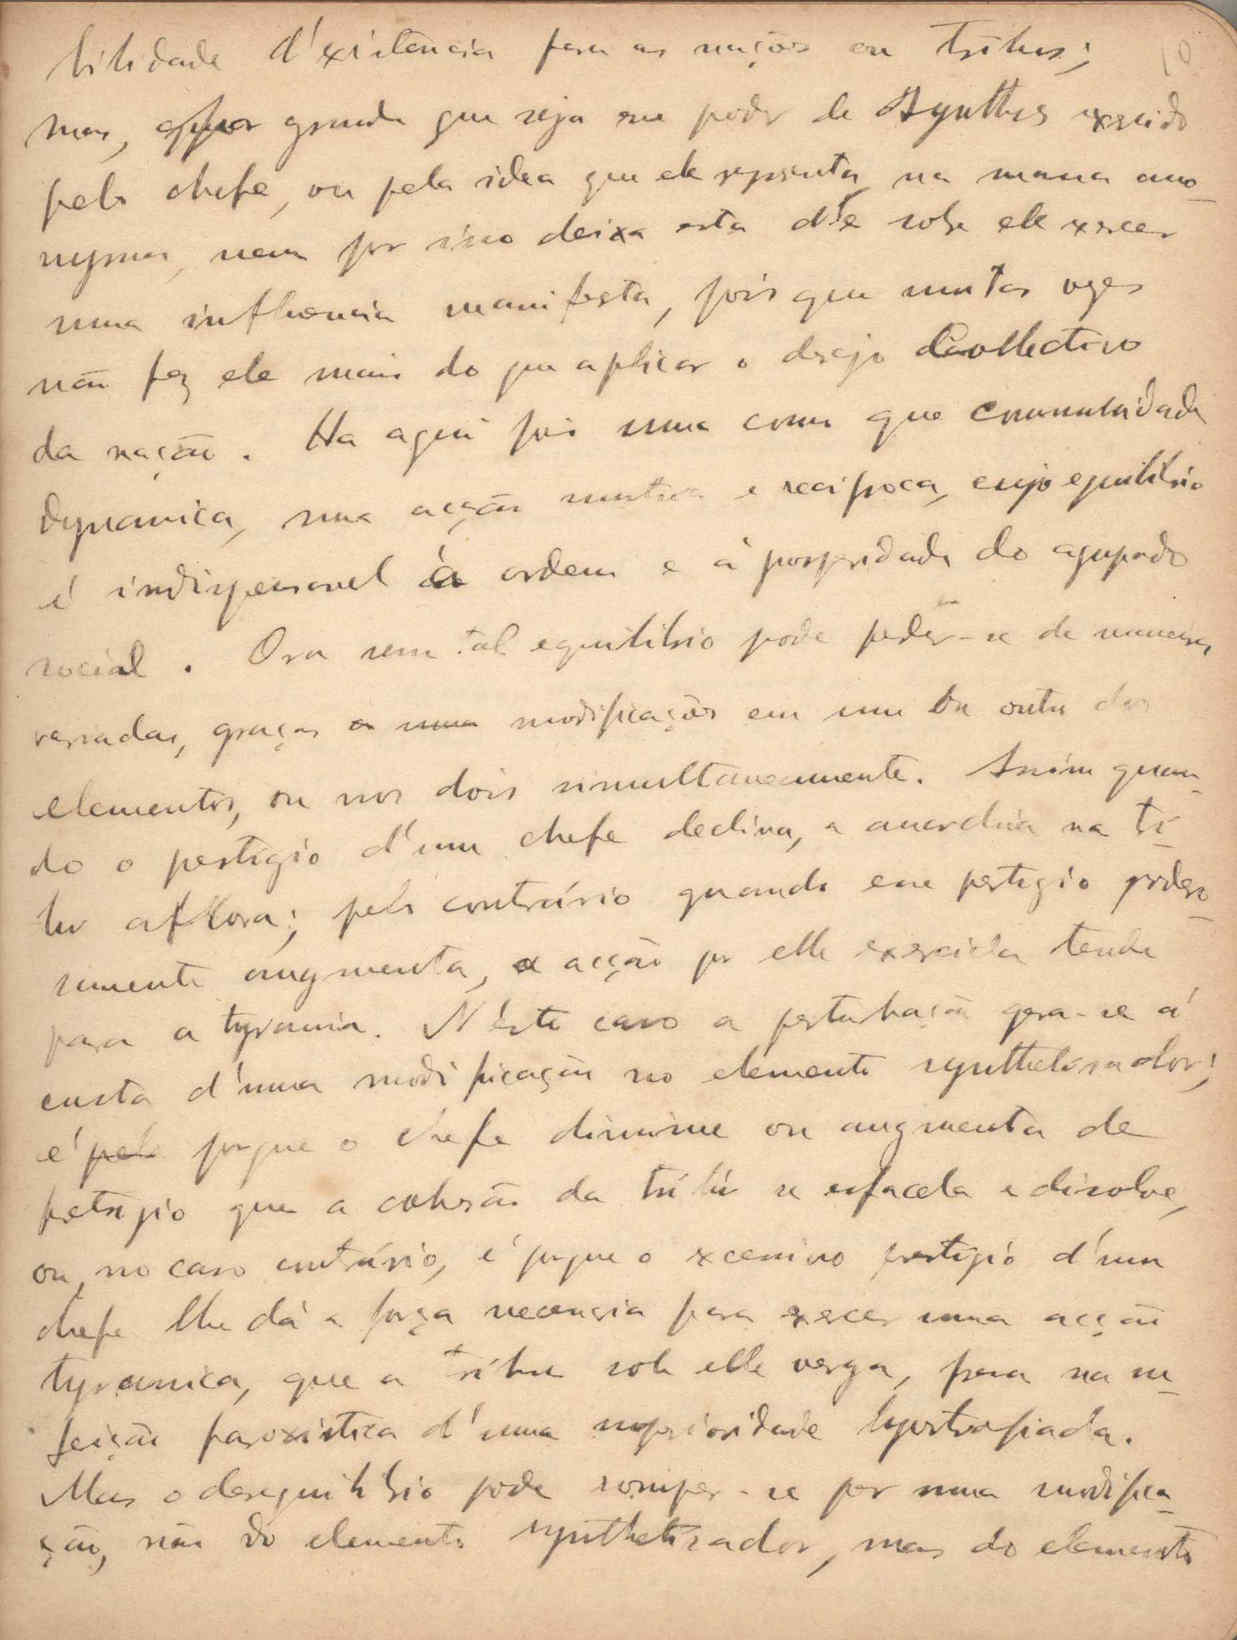 bilidade d'existencia para as nações ou tribus;
mas, por grande que seja esse poder de synthese exercido
pelo chefe, ou pela idea que ele representa, na massa ano-
nyma, nem por isso deixa esta d'e sobre ele exercer
uma influencia manifesta, pois que muitas vezes
não fez ele mais do que aplicar o desejo collectivo
da nação. Ha aqui pois uma como que communidade
dynamica, uma acção mutua e reciproca, cujo equilibrio
é indispensavel á ordem e á prosperidade do agrupado
social. Ora esse tal equilibrio pode perder-se de maneiras
variadas, graças a uma modificações em um ou outro dos
elementos, ou nos dois simultaneamente. Assim quan-
do o prestigio d'um chefe declina, a anarchia na tri-
bu aflora; pelo contrário quando esse prestigio podero-
samente augmenta, a acção por elle exercida tende
para a tyrannia. N'éste caso a perturbação gera-se á
custa d'uma modificação no elemento synthetisador;
é pelo porque o chefe diminue ou augmenta de
prestigio que a cohesão da tribú se esfacela e dissolve,
ou, no caso contrário, é porque o excessivo prestigio d'um
chefe lhe dá a força necessaria para exercer uma acção
tyranica, que a tribu sob elle verga, presa na su-
jeição paroxistica d'uma superioridade hypertrofiada.
Mas o desequilibrio pode romper-se por uma modifica-
ção, não do elemento synthetisador, mas do elemento